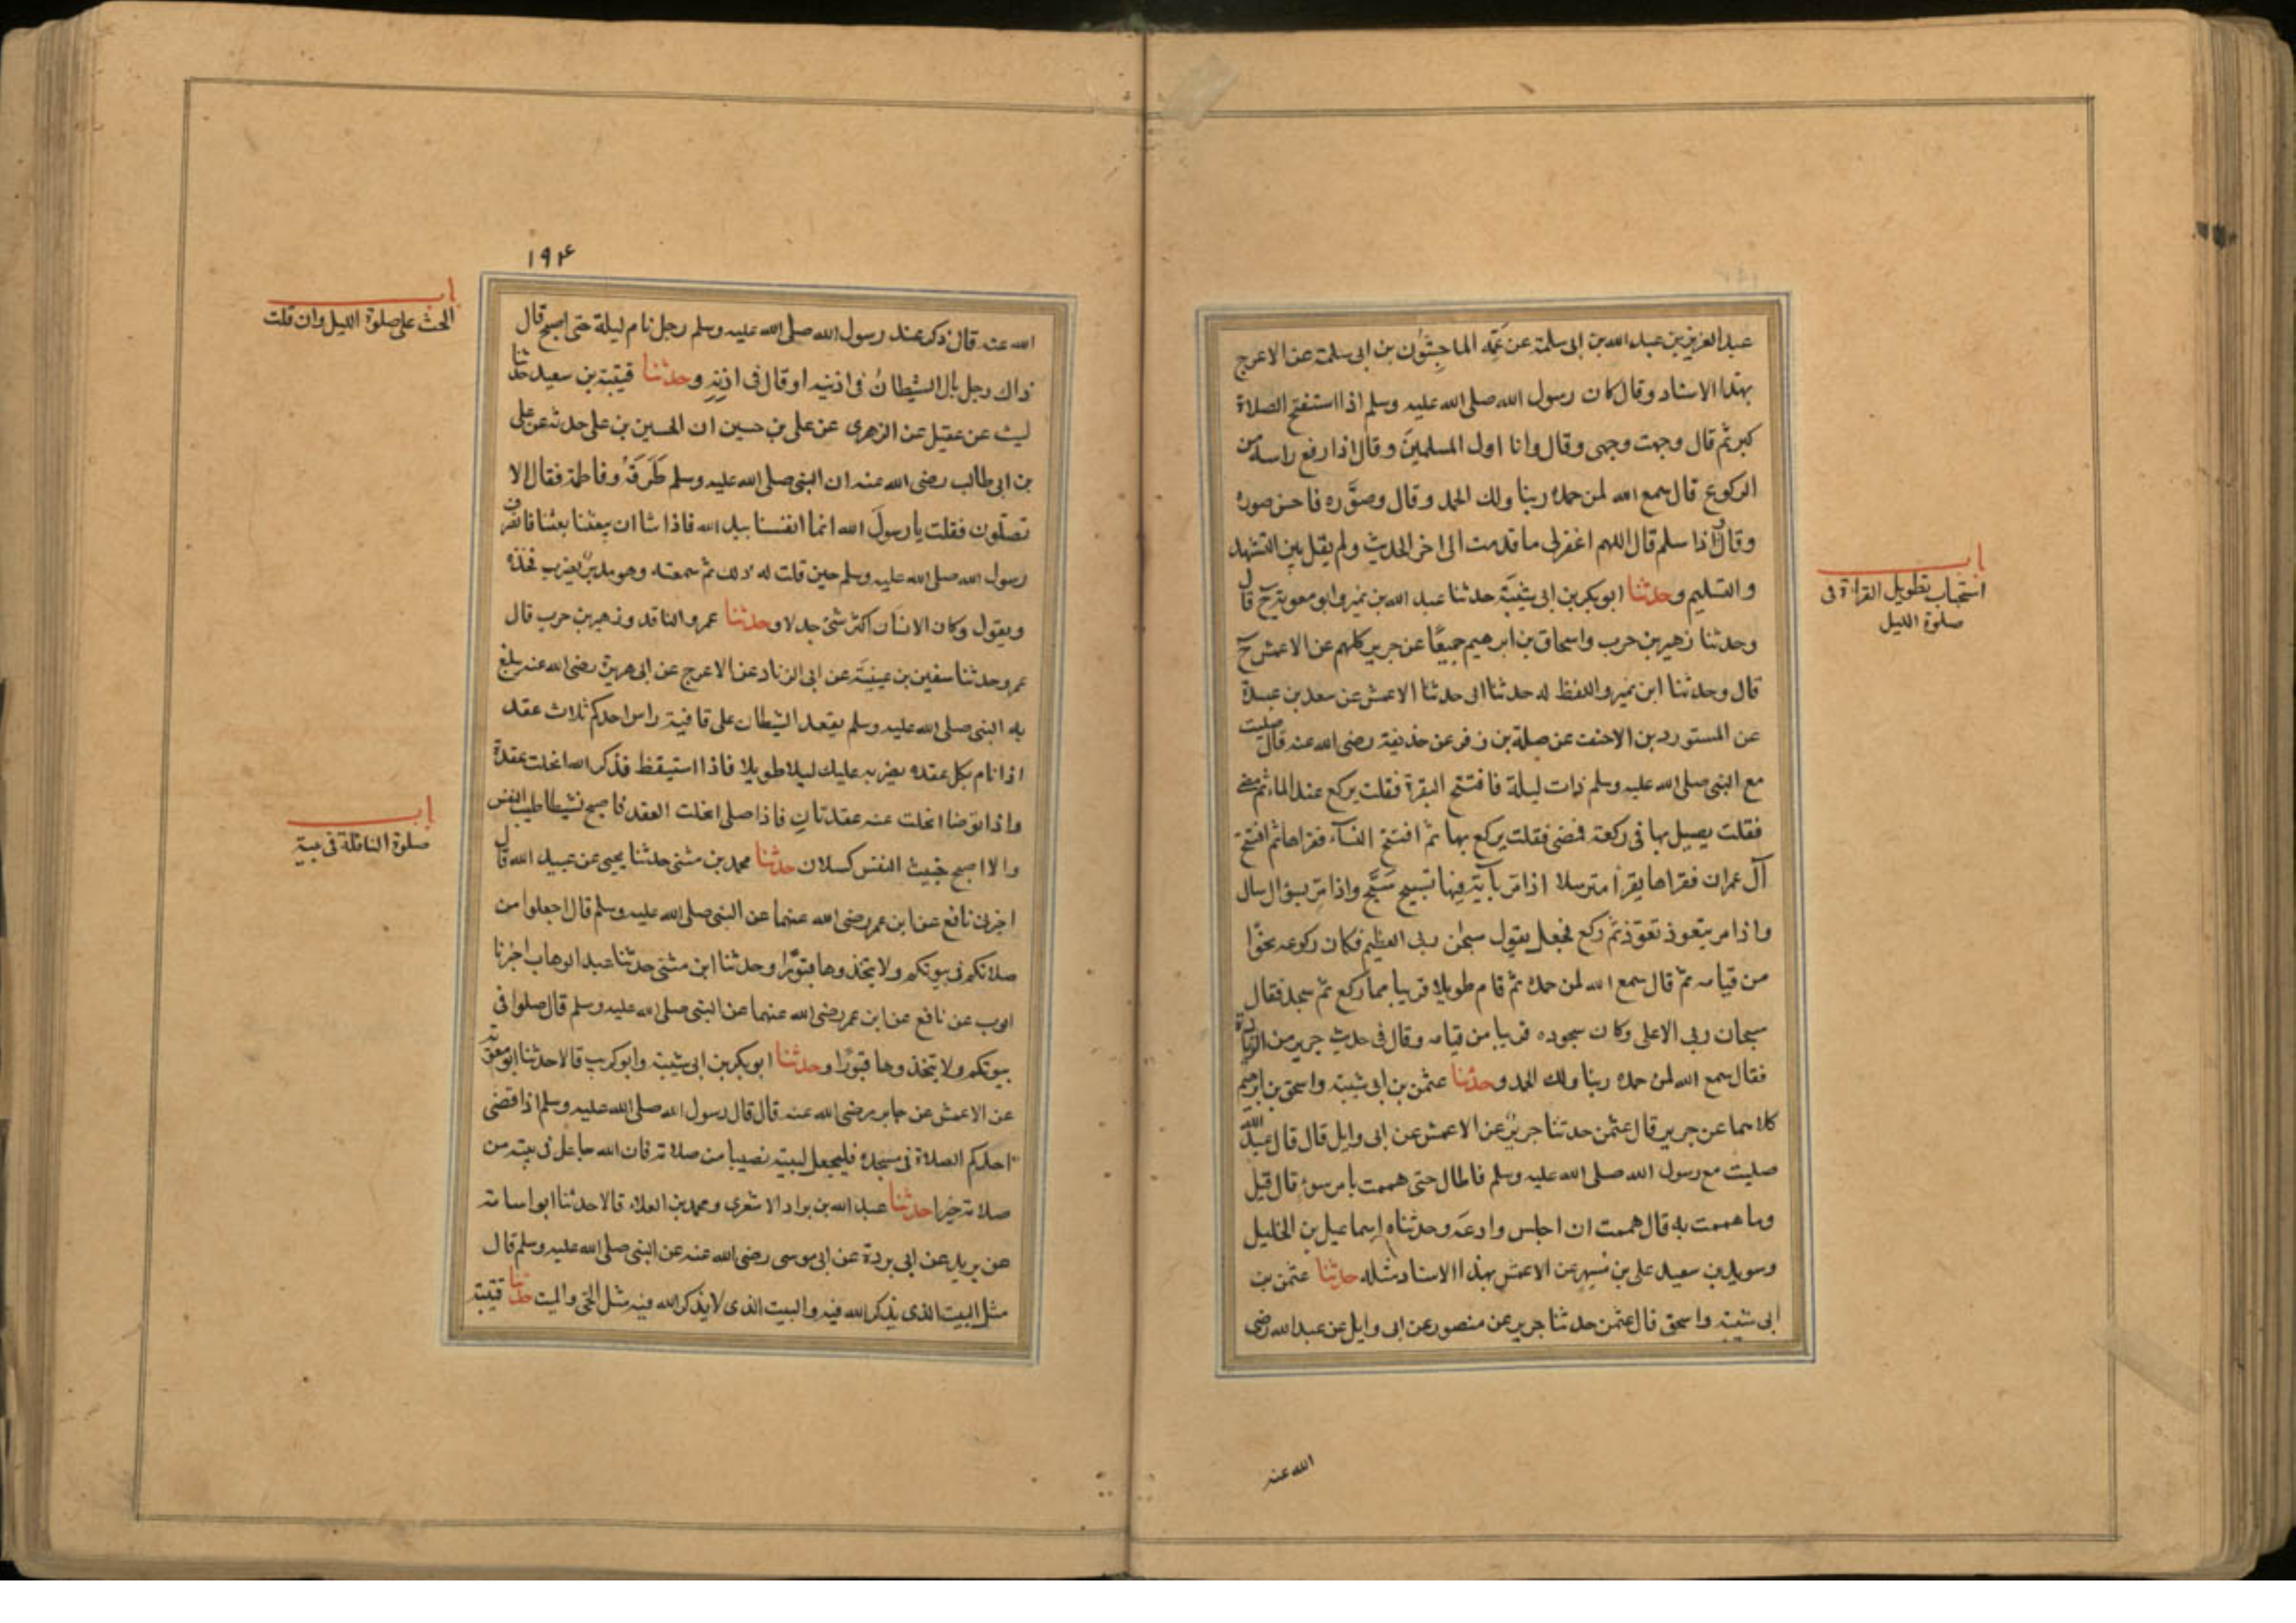 عبد العزيز بن عبد الله بن ابى سلمة عن عَمِّه الماجِشُون بن ابى سلمة عن الاعرج
بهذا الاسناد وقال كان رسول الله صلى الله عليه وسلم اذا استفتح الصلاة
كبر ثم قال وجهت وجهى وقال وانا اول المسلمينَ وقال اذا رفع راسه من
الركوع قال سمع الله لمن حمده ربنا ولك الحمد وقال وصوَّره فاحسن صوره
وقال اذا سلم قال اللهم اغفرلى ما قدمت الى اخر الحديث ولم يقل بين التشهد
والتسليم وحدثنا ابو بكر بن ابى شيبَة حدثنا عبد الله بن نمير وابو معوية ح قال
وحدثنا زهير بن حرب واسحاق بن ابرهيم جميعًا عن جرير كلهم عن الاعمش ح
قال وحدثنا ابن نمير واللفظ له حدثنا ابى حدثنا الاعمش عن سعد بن عبيدة
عن المستورد بن الاحنف عن صلة بن زفر عن حذيفة رضى الله عنه قال صليت
مع النبى صلى الله عليه وسلم ذات ليلة فافتتح البقرة فقلت يركع عند المائة ثم مضى
فقلت يصلى بها فى ركعة فمضى فقلت يركع بها ثم افتتح النسآء فقراها ثم افتتح
آل عمران فقراها يقرأ مترسلا اذا مر بآية فيها تسبيح سَبَّح واذا مر بسؤال سال
واذا مر بتعوذ تعوّذ ثم ركع فجعل يقول سبحن ربى العظيم فكان ركوعه نحوًا
من قيامه ثم قال سمع الله لمن حمده ثم قام طويلا قريبا مما ركع ثم سجد فقال
سبحان ربى الاعلى وكان سجوده قريبا من قيامه وقال فى حديث جرير من الزيادة
فقال سمع الله لمن حمده ربنا ولك الحمد وحدثنا عثمن بن ابى شيبة واسحق بن ابرهيم
كلاهما عن جرير قال عثمن حدثنا جريرٌ عن الاعمش عن ابى وايل قال قال عبد الله
صليت مع رسول الله صلى الله عليه وسلم فاطال حتى هممت بامر سوءٍ قال قيل
وما هممت به قال هممت ان اجلس وادعَه وحدثناه اسماعيل بن الخليل
وسويد بن سعيد على بن مُسهِر عن الاعمش بهذا الاسناد مثله حدثنا عثمن بن
ابى شيبة واسحق قال عثمن حدثنا جرير عن منصور عن ابى وايل عن عبد الله رضى
الله عنه
باب
استحباب تطويل القراءة فى
صلوة الليل
١٩٤
الله عنه قال ذكر عند رسول الله صلى الله عليه وسلم رجل نام ليلة حتى اصبح قال
ذاك رجل بال الشيطانُ فى اذنيه او قال فى اذنِهِ وحدثنا قيتبة بن سعيد حدثنا
ليث عن عقيل عن الزهرى عن على بن حسين ان الحسين بن على حدثه عن على
بن ابى طالب رضى الله عنه ان النبى صلى الله عليه وسلم طَرَقَهُ وفاطمة فقال الا
تصلّون فقلت يا رسولَ الله انما انفسنا بيد الله فاذا شا ان يبعثنا بعثنا فانصرف
رسول الله صلى الله عليه وسلم حين قلت له ذلك ثم سمعته وهو مدبرٌ يضرب فخذه
ويقول وكان الانسَان اكثر شئ جدلا وحدثنا عمرو الناقد وزهير بن حرب قال
عمرو حدثنا سفين بن عيينَة عن ابى الزناد عن الاعرج عن ابى هريرة رضى الله عنه يبلغ
به النبى صلى الله عليه وسلم يعقد الشيطان على قافية راس احدكم ثلاث عقد
اذا نام بكل عقده يضرب عليك ليلا طويلا فاذا استيقظ فذكر الله انحلت عقدة
واذا توضا انحلت عنه عقدتان فاذا صلى انحلت العقد فاصبح نشيطا طيب النفس
والا اصبح خبيث النفس كسلان حدثنا محمد بن مثنى حدثنا يحيى عن عبيد الله قال
اخبرنى نافع عن ابن عمر رضى الله عنهما عن النبى صلى الله عليه وسلم قال اجعلوا من
صلاتكم فى بيوتكم ولا يتخذوها قبورًا وحدثنا ابن مثنى حدثنا عبد الوهاب اخبرنا
ايوب عن نافع عن ابن عمر رضى الله عنهما عن النبى صلى الله عليه وسلم قال صلوا فى
بيوتكم ولا يتخذوها قبورًا وحدثنا ابو بكر بن ابى شيبة وابو كريب قالا حدثنا ابو معوية
عن الاعمش عن جابر رضى الله عنه قال قال رسول الله صلى الله عليه وسلم اذا قضى
احدكم الصلاة فى مسجده فليجعل لبيته نصيبا من صلاته فان الله جاعل فى بيته من
صلاته خيرا حدثنا عبد الله بن براد الاشعرى ومحمد بن العلاء قالا حدثنا ابو اسامة
عن بريد عن ابى بردة عن ابى موسى رضى الله عنه عن النبى صلى الله عليه وسلم قال
مثل البيت الذى يذكر الله فيه والبيت الذى لا يذكر الله فيه مثل الحَىّ والميت حدثنا قتيبة
باب
الحث على صلوة الليل وان قلت
باب
صلوة النافلة فى بيته